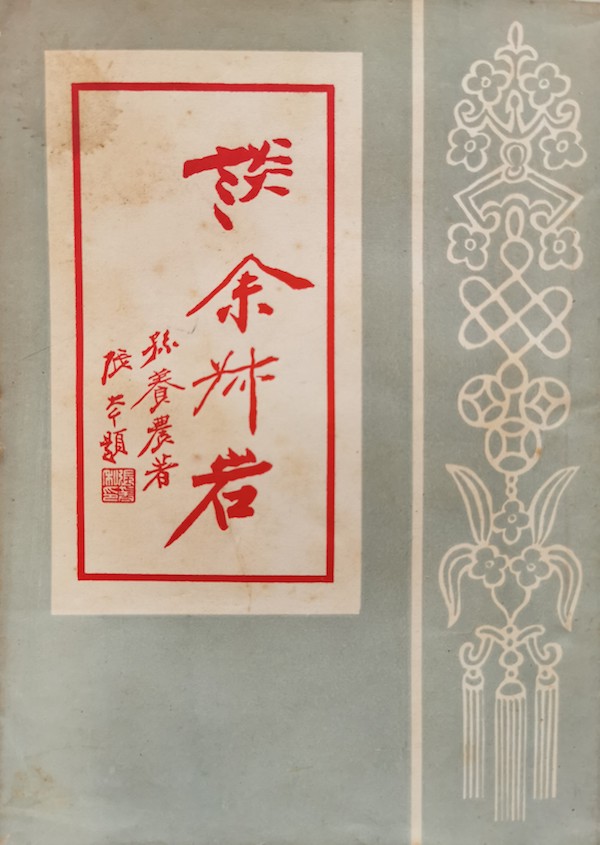 談余叔岩
孫養農著
張大千題